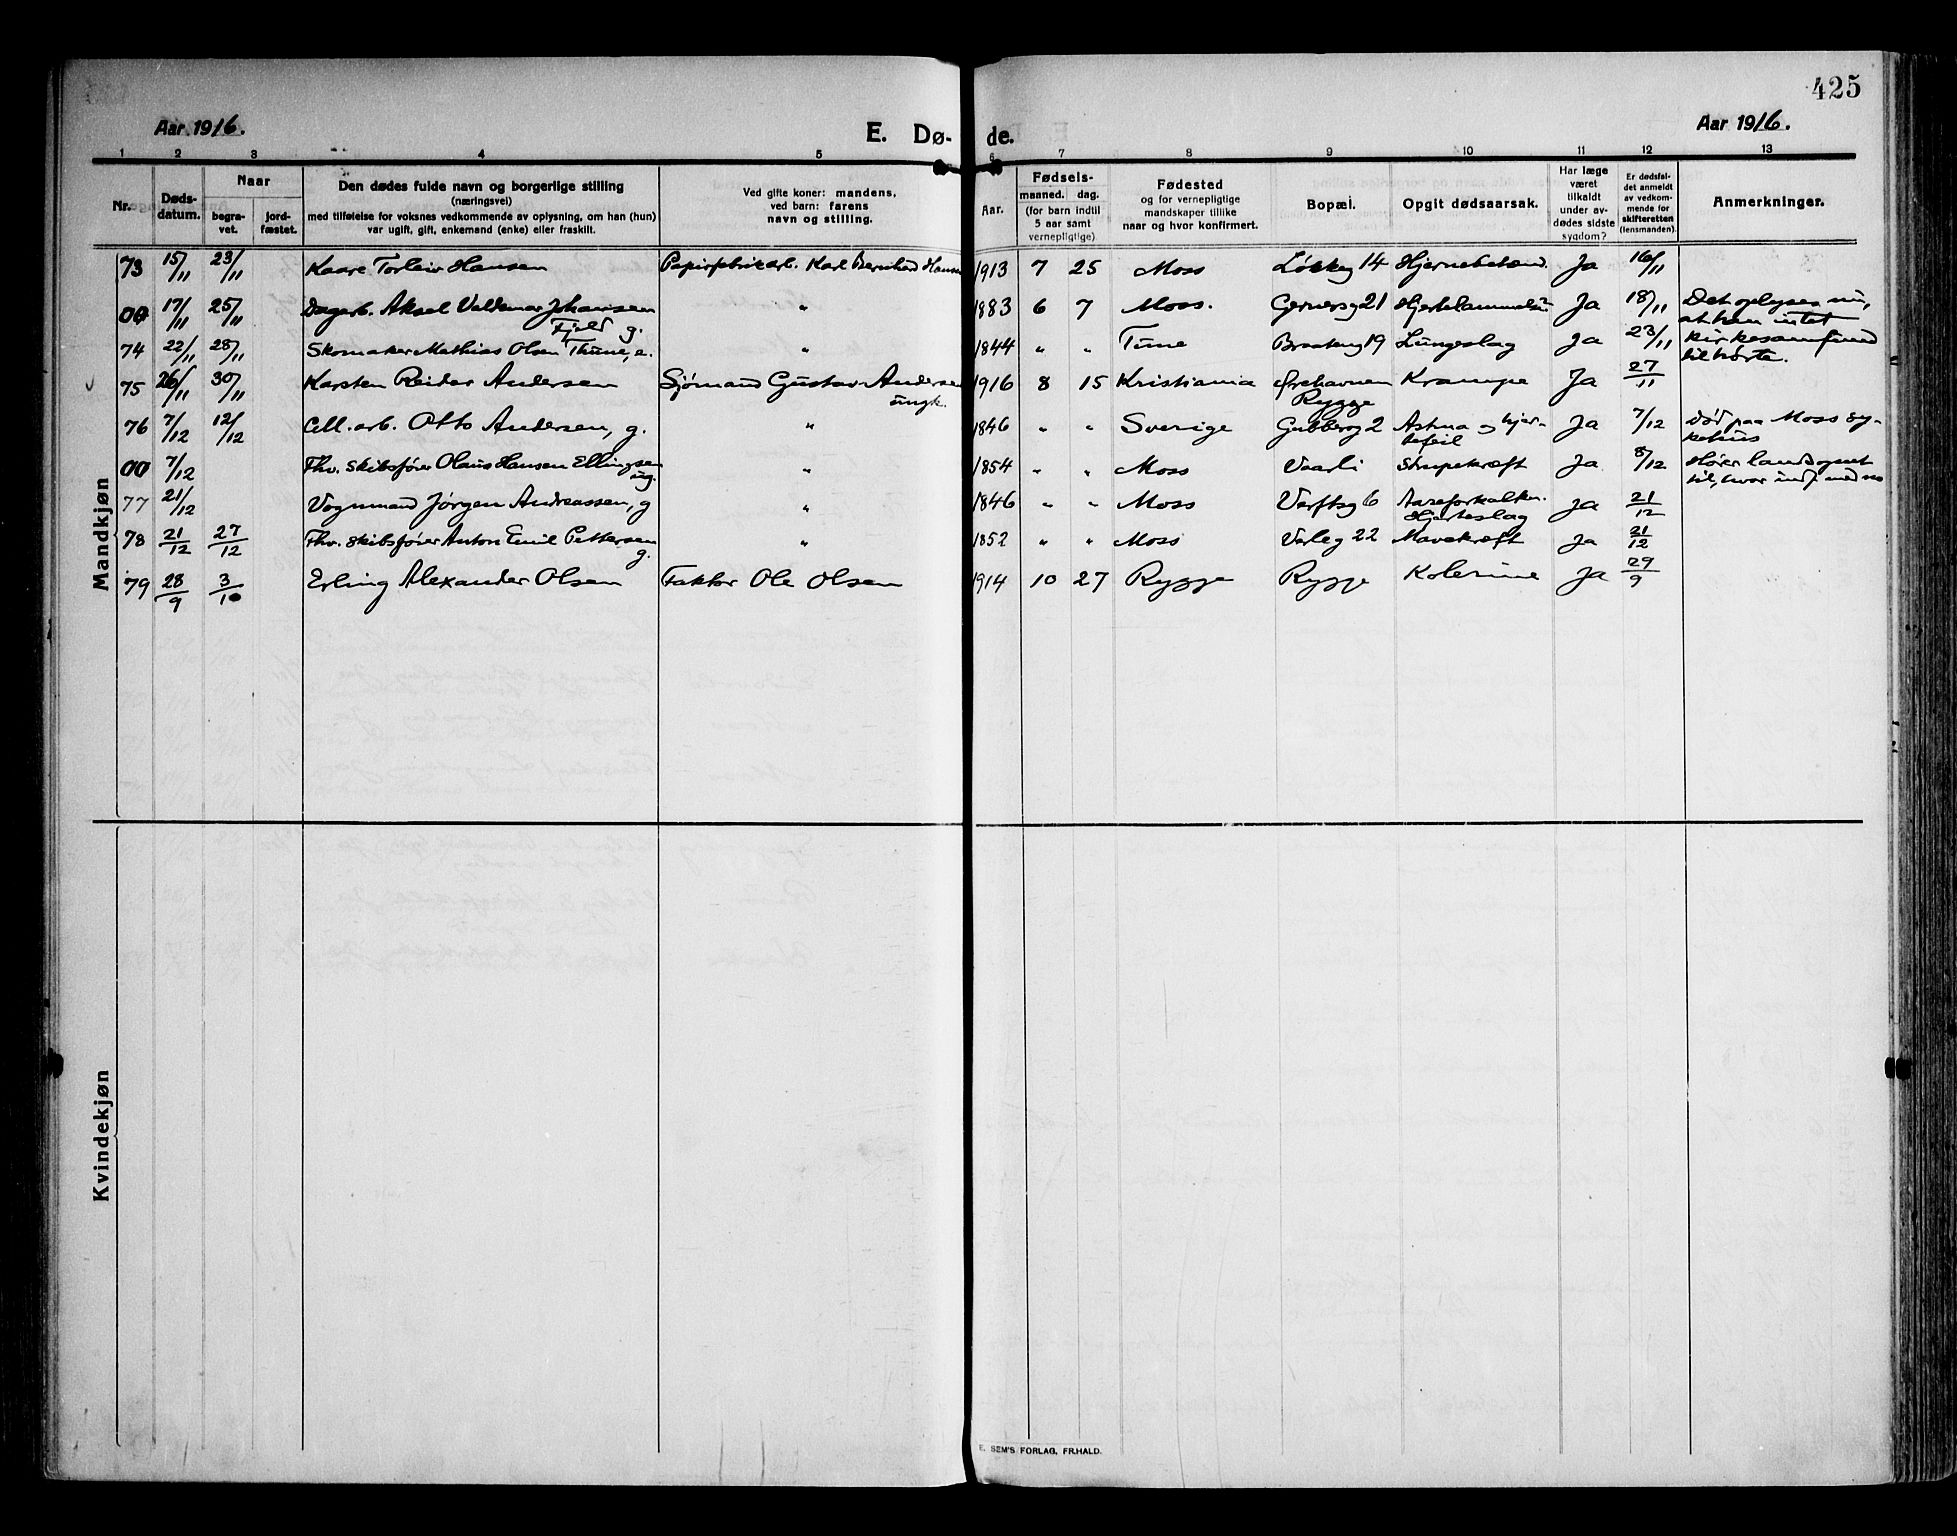 425
Aar 1916.
E. Dø-
de.
Aar 1916.
1 2 3 4 5 6 7 8 9 10 11 12 13
Nr.
Døds-
datum.
Naar
begra-
vet.
jord-
fæstet.
Den dødes fulde navn og borgerlige stilling
(næringsvei)
med tilføielse for voksnes vedkommende av oplysning, om han (hun)
var ugift, gift, enkemand (enke) eller fraskilt.
Ved gifte koner: mandens,
ved barn: farens
navn og stilling.
Aar.
Fødsels-
maaned. dag.
(for barn indtil
5 aar samt
vernepligtige)
Fødested
og for vernepligtige
mandskaper tillike
naar og hvor konfirmert.
Bopæl.
Opgit dødsaarsak.
Har læge
været
tilkaldt
under av-
dødes sidste
sygdom?
Er dødsfal-
det anmeldt
av vedkom-
mende for
skifteretten
(lensmanden).
Anmerkninger.
Mandkjøn
73 15/11 23/11 Kaare Torleiv Hansen Papirfabrikarb. Karl Bernhard Hansen 1913 7 25 Moss Løkkeg 14 Hjernebetænd. Ja 16/11
00 17/11 25/11 Dagarb. Aksel Valdemar Johansen " 1883 6 7 Moss. Gernersg 21 Ja 18/11 Det oplyses nu,
Fjeld g.
at han intet
74 22/11 28/11 Skomaker Mathias Olsen Thune, e. " 1844 " " Tune 19 Lungeslag Ja 23/11 kirkesamfund
tilhørte.
75 26/11 30/11 Karsten Reidar Andersen Sjømand Gustav Andersen 1916 8 15 Kristiania Ørehavnen Krampe Ja 27/11
ungk.
Rygge
76 7/12 12/12 Cell. arb. Otto Andersen, g. " 1846 " " Sverige Gubberg 2 Astma og hjer- Ja 7/12 Død paa Moss sy-
tefeil
kehus
00 7/12 Fhv. Skibsfører Olaus Hansen Ellingsen " 1854 " " Moss Vaarli Strupekræft Ja 8/12 Hører landsognet
ug.
til, hvor indf. med no
77 21/12 Vognmand Jørgen Andreassen, g " 1846 " " Moss Verftsg 6 Aareforkalkn. Ja 21/12
Hjerteslag
78 21/12 27/12 Fhv. Skibsfører Anton Emil Pettersen " 1852 " " Moss Varleg 22 Mavekræft Ja 21/12
g.
79 28/9 3/10 Erling Alexander Olsen Faktor Ole Olsen 1914 10 27 Rygge Rygge Kolerine Ja 29/9
Kvindekjøn
E. SEM'S FORLAG, FR.HALD.